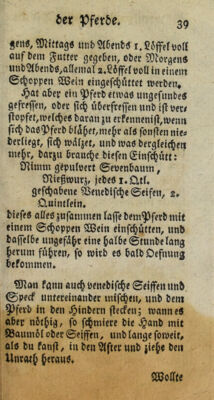 der Pferde. 39
gens, Mittags und Abends 1. Löffel voll
auf dem Futter gegeben, oder Morgens
und Abends, allemal 2. Löffel voll in einem
Schoppen Wein eingeschüttet werden.
Hat aber ein Pferd etwas ungesundes
gefressen, oder sich überfressen und ist ver-
stopfet, welches daran zu erkennen ist, wenn
sich das Pferd blähet, mehr als sonsten nie-
derliegt, sich wälzet, und was dergleichen
mehr, darzu brauche diesen Einschütt:
Nimm gepulvert Sevenbaum,
Nießwurz, jedes 1. Qtl.
geschabene Venedische Seifen, 2.
Quintlein.
dieses alles zusammen lasse dem Pferd mit
einem Schoppen Wein einschütten, und
dasselbe ungefähre eine halbe Stunde lang
herum führen, so wird es bald Oefnung
bekommen.
Man kann auch venedische Seiffen und
Speck untereinander mischen, und dem
Pferd in den Hindern stecken; wann es
aber nöthig, so schmiere die Hand mit
Baumöl oder Seiffen, und lange soweit,
als du kanst, in den After und ziehe den
Unrath heraus.
Wollte